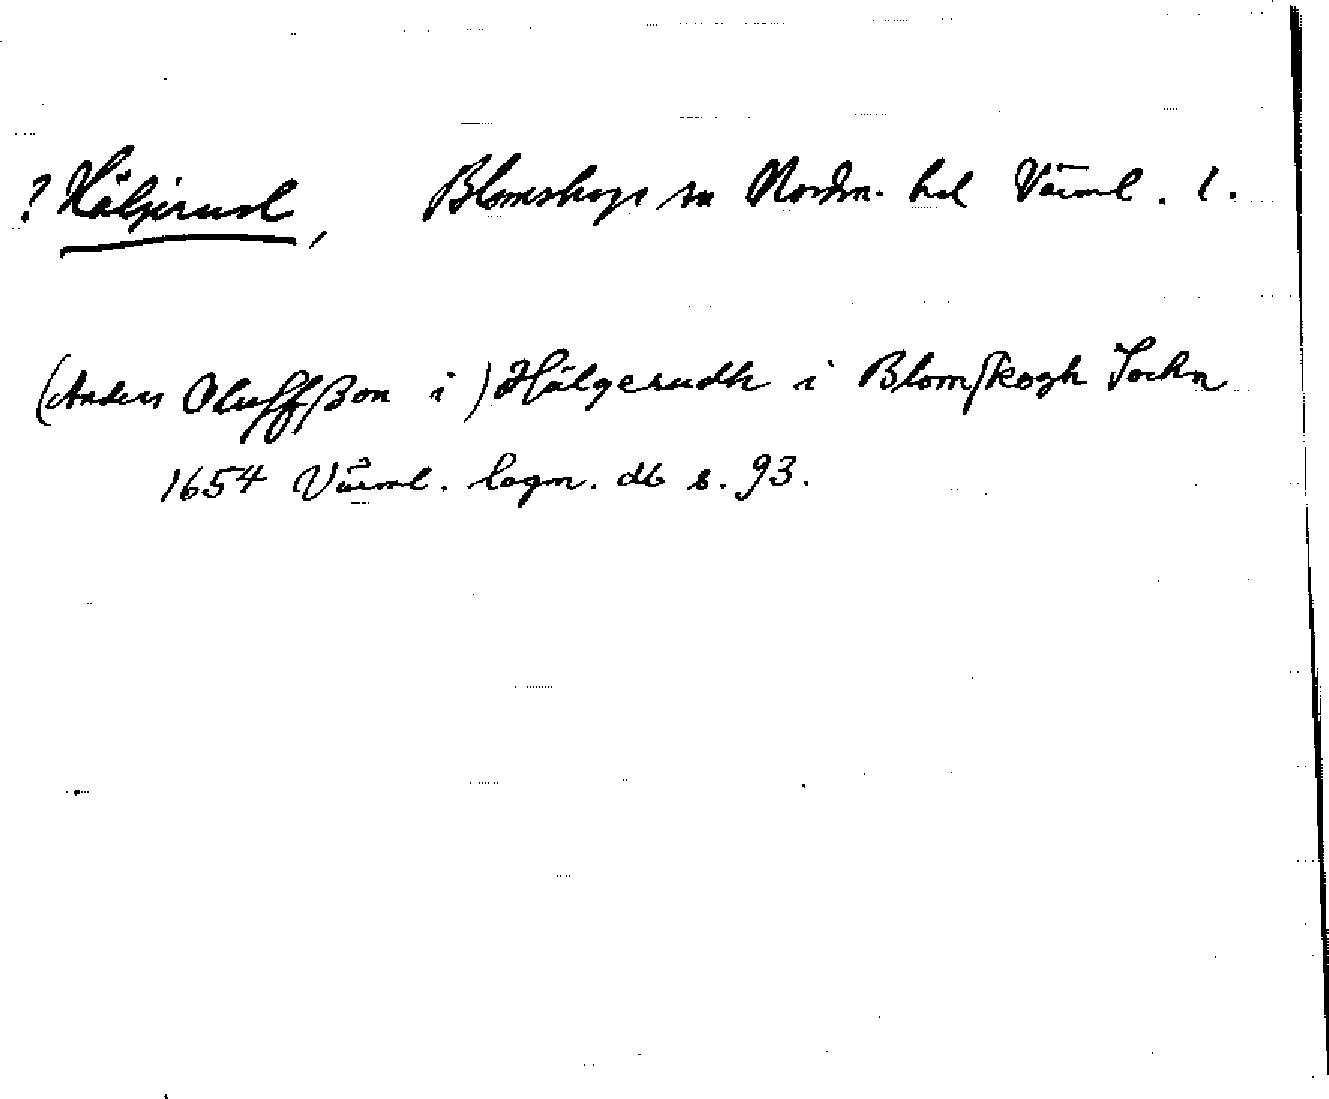 ? Häljerud, Blomskogs sn Nordm. hd Värml. l.
(Anders Oluffßon i) Hälgerudh i Blomskogh Sockn
1654 Värml. lagm. db s. 93.